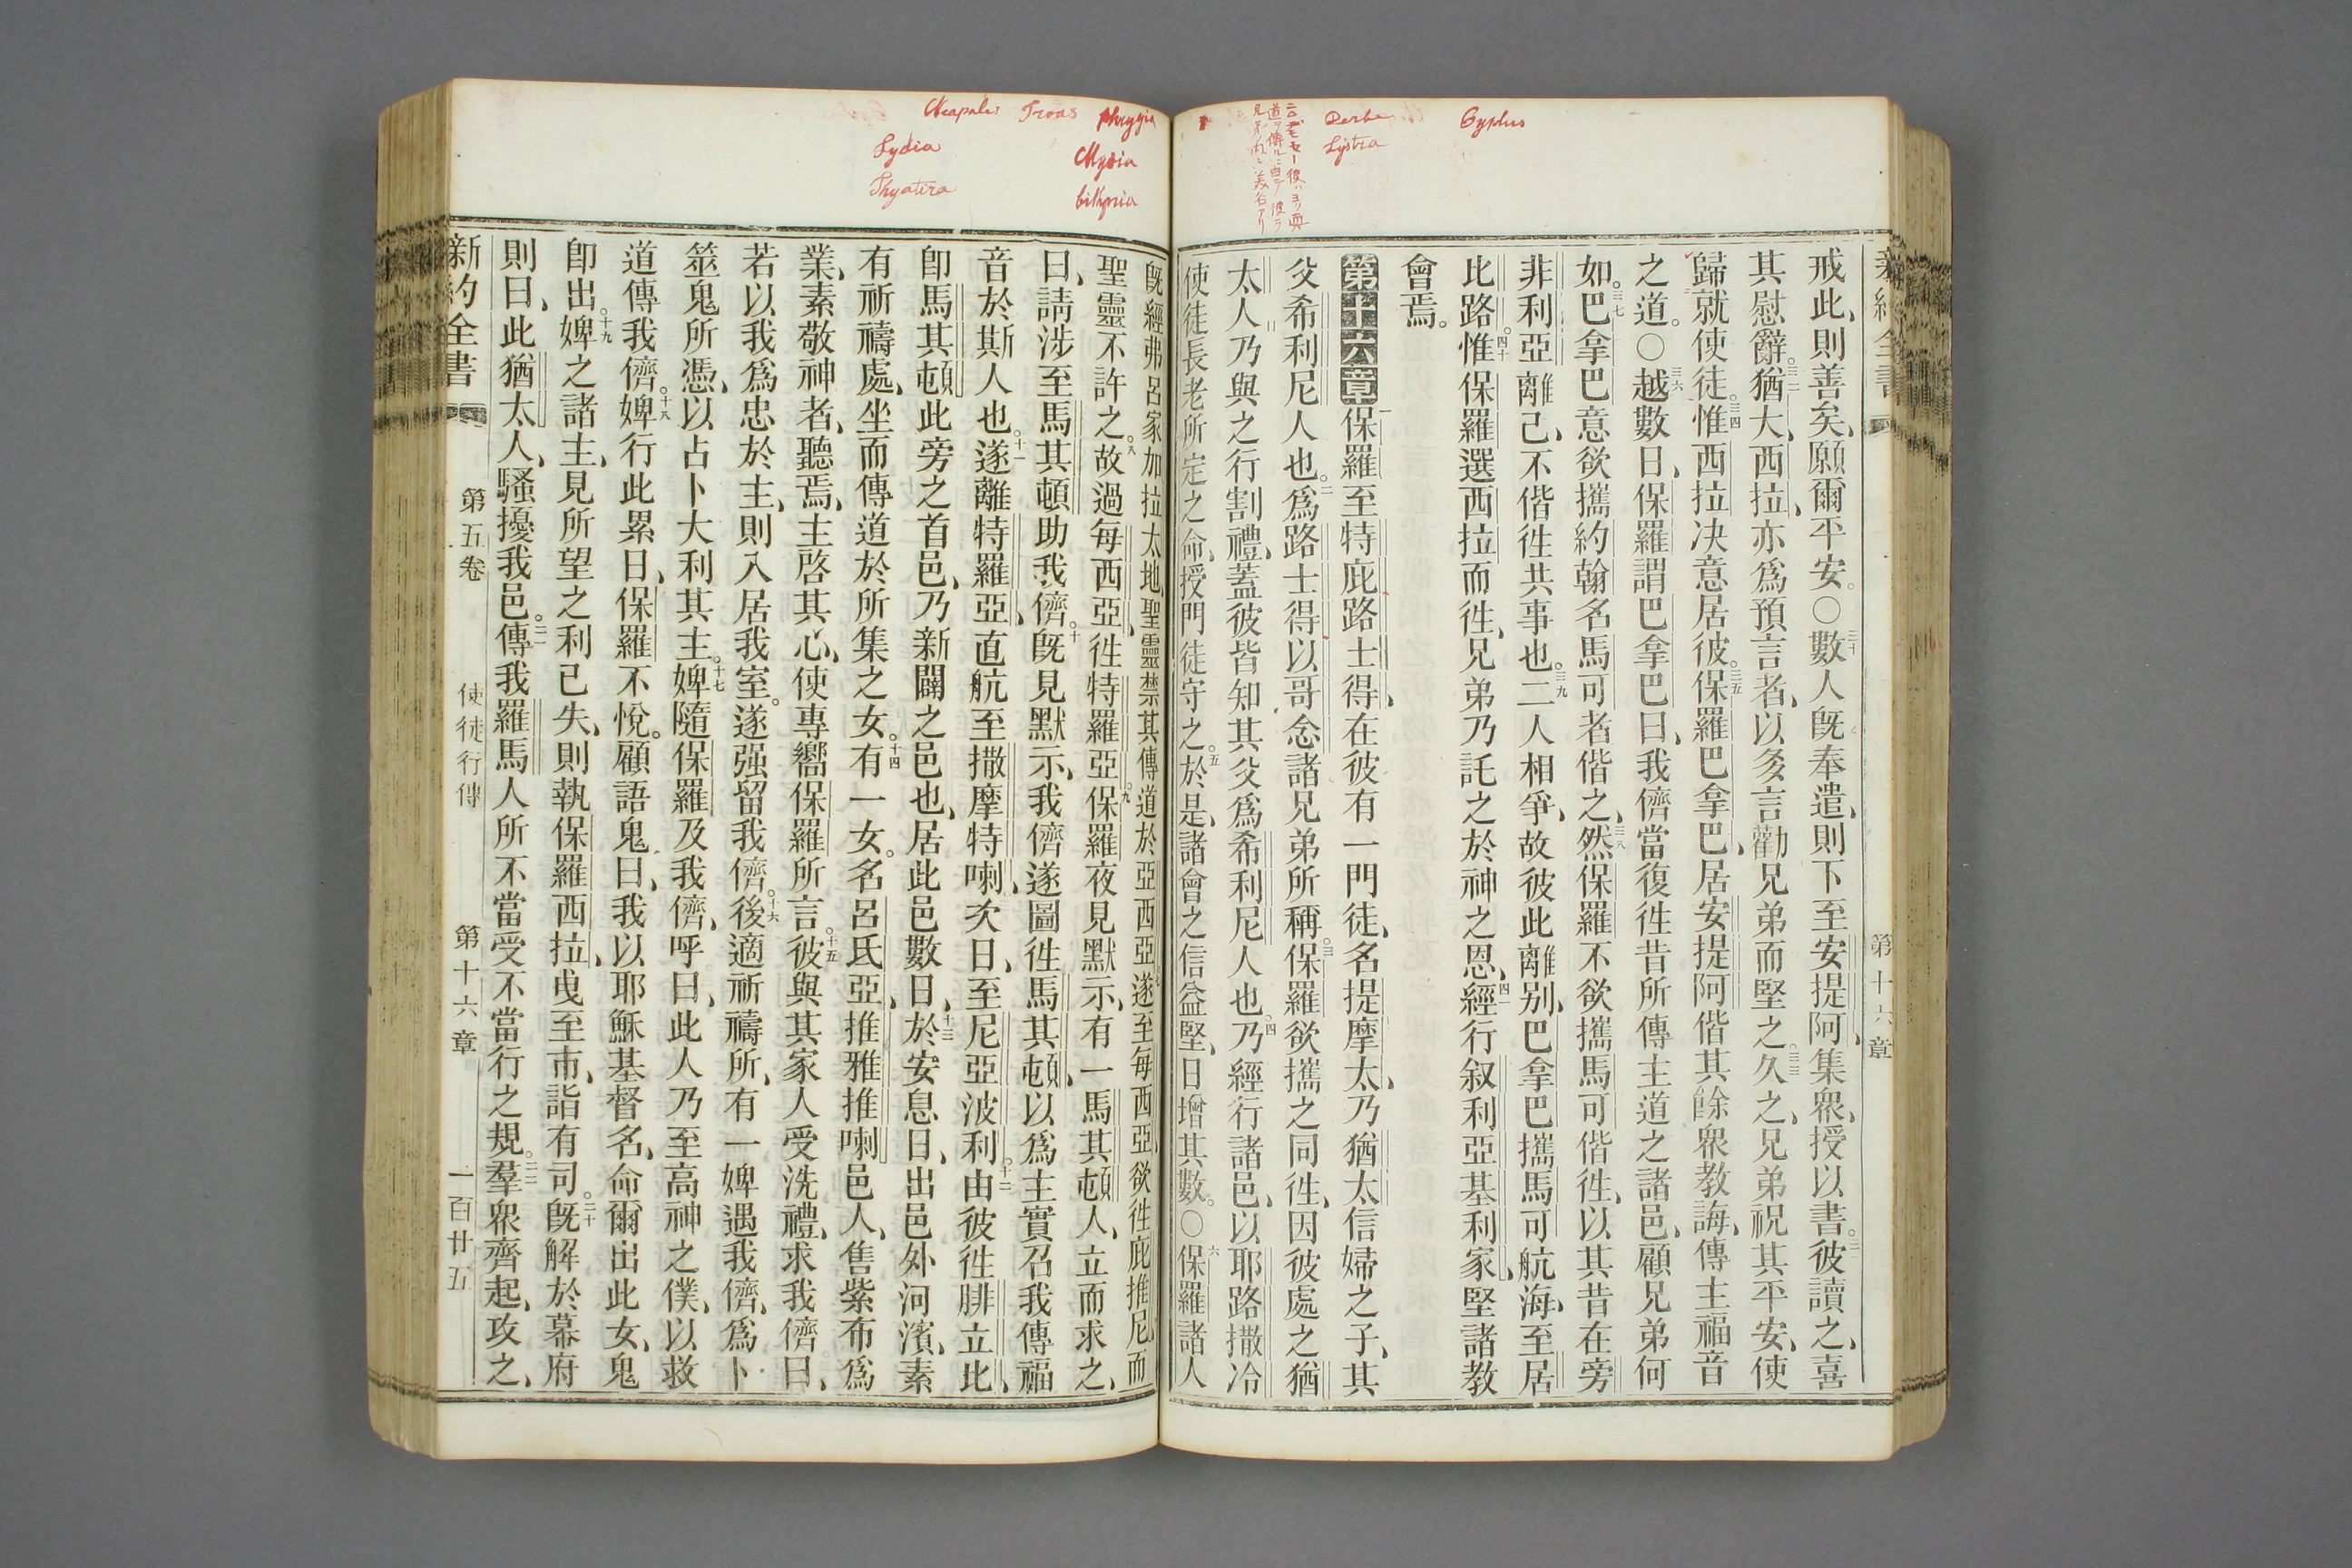 Cyplus
Derbe
Lystra
phrygia
Mysia
bithynia
Troas
Neapolis
Lydia
Thyatira
第十六章
戒此、則善矣、願爾平安。〇三十數人旣奉遣、則下至安提阿、集衆、授以書。三一彼讀之、喜
其慰辭。三二猶大、西拉、亦爲預言者、以多言勸兄弟而堅之。三三久之、兄弟祝其平安、使
歸就使徒。三四惟西拉決意居彼。三五保羅巴拿巴、居安提阿、偕其餘衆教誨、傳主福音
之道。〇三六越數日、保羅謂巴拿巴曰、我儕當復徃昔所傳主道之諸邑、顧兄弟何
如。三七巴拿巴意欲攜約翰名馬可者偕之、三八然保羅不欲攜馬可偕徃、以其昔在旁
非利亞離己、不偕徃共事也。三九二人相爭、故彼此離別、巴拿巴攜馬可航海、至居
比路。四十惟保羅選西拉而徃、兄弟乃託之於神之恩、四一經行叙利亞基利家、堅諸教
會焉。
第十六章 一保羅至特庇路士得、在彼有一門徒、名提摩太、乃猶太信婦之子、其
父希利尼人也。二爲路士得以哥念諸兄弟所稱。三保羅欲攜之同徃、因彼處之猶
太人、乃與之行割禮、蓋彼皆知其父爲希利尼人也。四乃經行諸邑、以耶路撒冷
使徒長老所定之命、授門徒守之。五於是、諸會之信益堅、日增其數。〇六保羅諸人
旣經弗呂家加拉太地、聖靈禁其傳道於亞西亞、遂至每西亞、欲徃庇推尼、而
聖靈不許之。八故過每西亞、徃特羅亞。九保羅夜見默示、有一馬其頓人、立而求之、
曰、請涉至馬其頓助我儕。十旣見默示、我儕遂圖徃馬其頓、以爲主實召我傳福
音於斯人也。十一遂離特羅亞、直航至撒摩特喇、次日、至尼亞波利。十二由彼徃腓立比、
卽馬其頓此旁之首邑、乃新闢之邑也、居此邑數日、十三於安息日、出邑外河濱、素
有祈禱處、坐而傳道於所集之女。十四有一女。名呂氏亞、推雅推喇邑人、售紫布爲
業、素敬神者、聽焉、主啓其心、使專嚮保羅所言。十五彼與其家人受洗禮、求我儕曰、
若以我爲忠於主、則入居我室。遂强留我儕。十六後適祈禱所、有一婢遇我儕、爲卜
筮鬼所憑、以占卜大利其主。十七婢隨保羅及我儕、呼曰、此人乃至高神之僕、以救
道傳我儕。十八婢行此累日、保羅不悅。顧語鬼曰、我以耶穌基督名、命爾出此女、鬼
卽出。十九婢之諸主、見所望之利已失、則執保羅西拉、曳至市、詣有司。二十旣解於幕府
則曰、此猶太人、騷擾我邑。二一傳我羅馬人所不當受不當行之規。二二羣衆齊起、攻之、
新約全書 第五卷 使徒行傳 第十六章 一百廿五